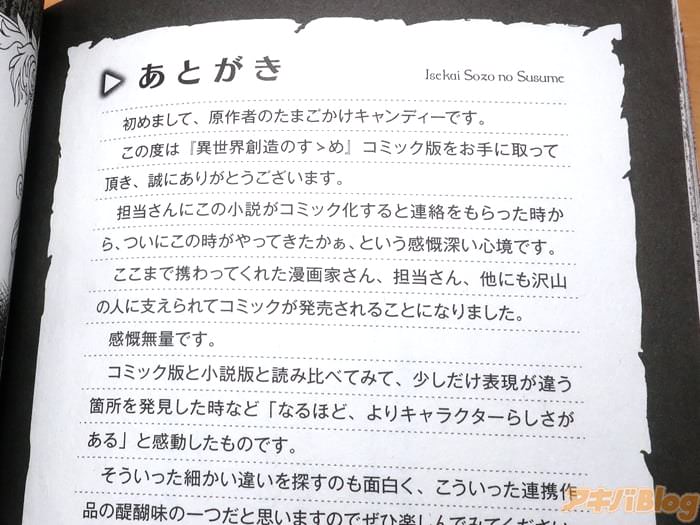 あとがき
Isekai Sozo no Susume
初めまして、原作者のたまごかけキャンディーです。
この度は『異世界創造のすゝめ』コミック版をお手に取って
頂き、誠にありがとうございます。
担当さんにこの小説がコミック化すると連絡をもらった時か
ら、ついにこの時がやってきたかぁ、という感慨深い心境です。
ここまで携わってくれた漫画家さん、担当さん、他にも沢山
の人に支えられてコミックが発売されることになりました。
感慨無量です。
コミック版と小説版と読み比べてみて、少しだけ表現が違う
箇所を発見した時など「なるほど、よりキャラクターらしさが
ある」と感動したものです。
そういった細かい違いを探すのも面白く、こういった連携作
品の醍醐味の一つだと思いますのでぜひ楽しんでみてください
アキバBlog